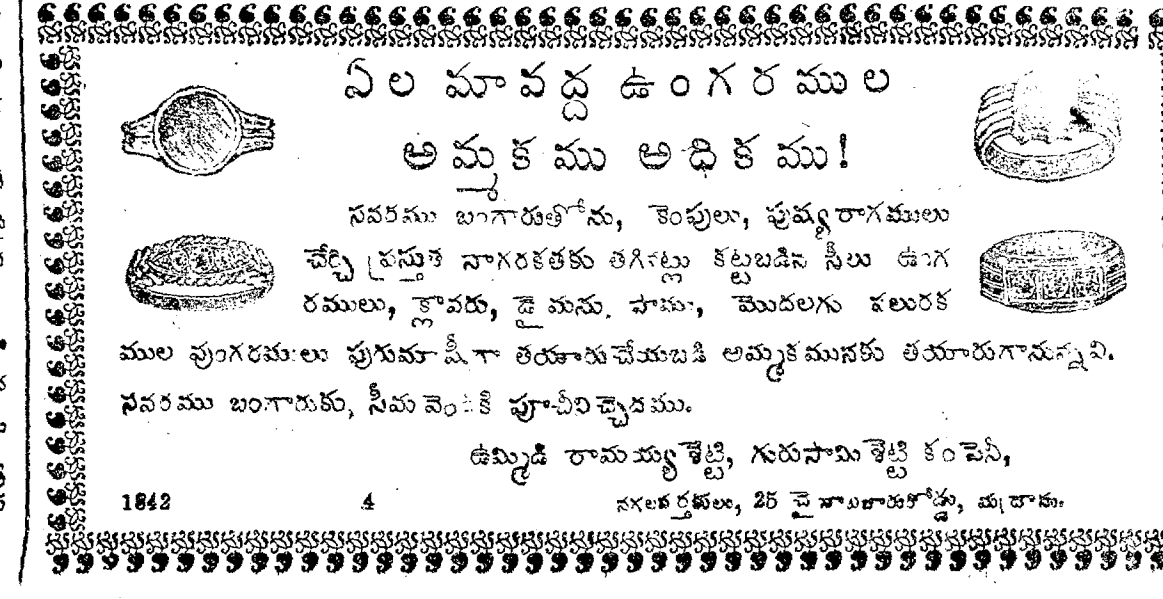 ఏల మావద్ద ఉంగరముల
అమ్మకము అధికము!
సవరము బంగారుతోను, కెంపులు, పుష్యరాగములు
చేర్చి ప్రస్తుత నాగరకతకు తగినట్లు కట్టబడిన సీలు ఉంగ
రములు, క్లావరు, డైమను, పాము, మొదలగు పలురక
ముల వుంగరములు ఫుగుమాషీగా తయారుచేయబడి అమ్మకమునకు తయారుగానున్నవి.
సవరము బంగారుకు, సీమ వెండికి పూచీనిచ్చెదము.
ఉమ్మిడి రామయ్యశెట్టి, గురుసామిశెట్టి కంపెనీ,
1842 4 నగలవర్తకులు, 25 చైనాబజారురోడ్డు, మదరాసు.